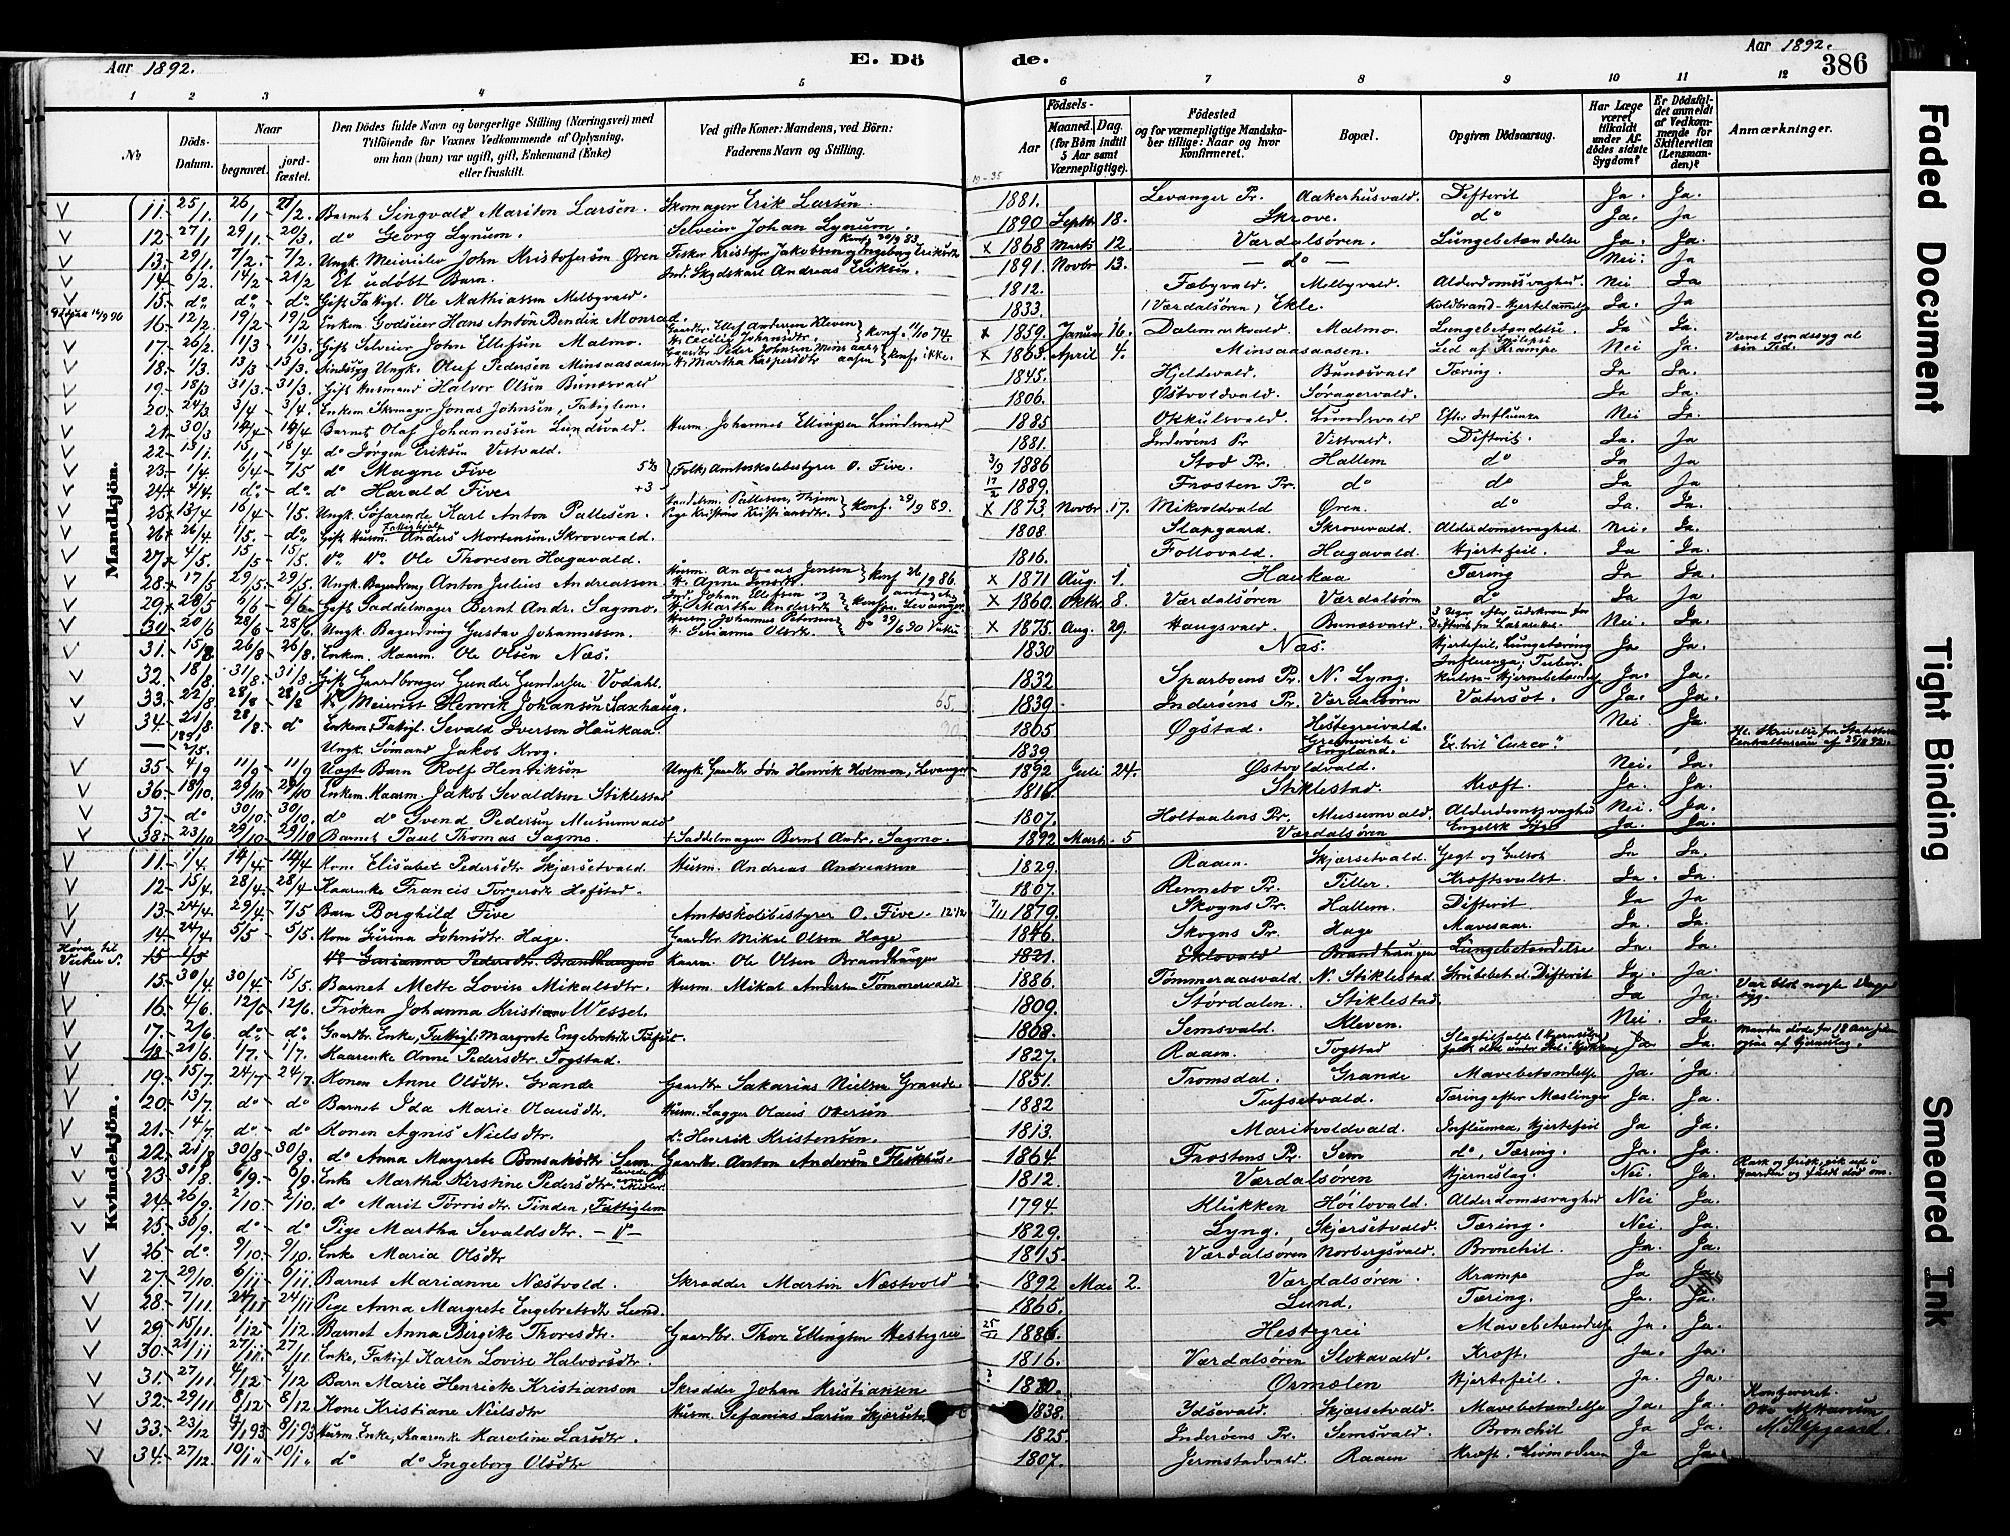 Aar 1892.
E. Dö
de.
Aar 1892.
386
1 2 3 4 5 6 7 8 9 10 11 12
№
Döds-Datum.
Naar
begravet.
jordfæstet.
Den Dödes fulde Navn og borgerlige Stilling (Næringsvei) med
Tilföiende for Voxnes Vedkommende af Oplysning,
om han (hun) var ugift, gift, Enkemand (Enke)
eller fraskilt.
Ved gifte Koner: Mandens, ved Börn:
Faderens Navn og Stilling.
Födsels-
Aar
Maaned. Dag.
(for Börn indtil
5 Aar samt
Værnepligtige).
Födested
og for værnepligtige Mandskaber tillige: Naar og hvor
konfirmeret.
Bopæl.
Opgiven Dödsaarsag.
Har Læge været tilkaldt under Afdödes sidste Sygdom?
Er Dödsfaldet anmeldt af Vedkommende for Skifteretten (Lensmanden)?
Anmærkninger.
Mandkjön.
11. 25/1. 26/1 27/2. Barnet Singvald Mariton Larsen. Skomager Erik Larsen. 1881. Levanger Pr. Aakerhusvald. Difterit Ja. Ja.
12. 27/1. 29/1. 20/3. do Georg Lynum. Selveier Johan Lynum. 1890 Septbr 18. Skrove. do Ja. Ja
13. 29/1. 7/2. 7/2. Ungk. Meierielev John Kristofersen Øren Fisker Kristofer Jakobsen og Ingeborg Eriksdtr x 1868 Marts 12. Værdalsøren. Lungebetændelse Ja. Ja.
14. 6/2. 14/2 21/2 Et udöbt Barn. Ind. Skydskarl Andreas Eriksen. 1891. Novbr 13. — do — Nei. Ja
15. do do do Gift Fattigl. Ole Mathiassen Melbyvald. 1812. Fæbyvald. Melbyvald. Alderdomssvaghed. Nei Ja
16. 12/2. 19/2 19/2 Enkem. Godseier Hans Anton Bendix Monrad. 1833. (Værdalsøren) Ekle. Koldbrand - Hjertelammelse Ja. Ja
17. 26/2. 11/3 11/3 Gift Selveier John Ellefsen Malmo. Gaardbr. Ellef Andersen Kleven x 1859. Januar 16. Dalemarkvald. Malmo. Lungebetændelse. Ja Ja
18. 1/3. 13/3 13/3 Sindssyg Ungk. Oluf Pedersen Minsaasaasen konf. ikke. x 1863. April 4. Minsaasaasen. Led af Krampe Nei Ja. Været sindssyg al sin Tid.
19. 18/3 31/3. 31/3. Gift Husmand Halvor Olsen Bunæsvald 1845. Hjeldsvald. Bunæsvald Tæring. Ja Ja
20. 24/3. 3/4. 3/4. Enkem. Skomager Jonas Johnsen, Fattiglem. 1806. Østvoldvald. Søragervald. Ja Ja.
21. 30/3 14/4 14/4 Barnet Olaf Johannessen Lundsvald. Husm. Johannes Ellingsen Lundsvald 1885 Okkulsvald. Lundsvald Efter Influenza Nei Ja.
22. 13/1. 15/1 18/4 do Jørgen Eriksen Vistvald. 1881. Inderøens Pr Vistvald. Difterit. Ja. Ja
23. 1/4. 6/4 7/5 do Magne Five (Folk) Amtsskolebestyrer O. Five. 3/9 1886 Stod Pr. Hallem do Ja Ja
24. 4/4. do do do Harald Five +3 17/2 1889. Frosten Pr. do do Ja Ja
25. 13/4 16/4 1/5. Ungk. Søfarende Karl Anton Pallesen. konf. 29/9 89. x 1873 Novbr. 17. Mikvoldvald Øren. do Ja. Ja.
26. 26/4 1/5. do Gift Husm. Fattighjelp Anders Mortensen Skrovevald. 1808. Slapgaard. Skrovevald. Alderdomssvaghed. Nei. Ja.
27. 4/5. 15/5 15/5. do do Ole Thoresen Hagavald. 1816. Follovald. Hagavald. Hjertefeil. Ja Ja.
28. 17/5 29/5. 29/5. Ungk. Bagerdreng Anton Julius Andreassen Husm. Andreas Jensen konf 26/9 86. x 1871 Aug. 1. Haukaa Tæring Ja Ja.
29. 28/5 6/6 6/6 Gift Saddelmager Bernt Andr. Sagmo. Ind. Johan Ellefsen og Martha Andersdtr x 1860. Oktbr. 8. Værdalsøren Værdalsøren do Ja Ja
30. 20/6 28/6 28/6. Ungk. Bagerdreng Gustav Johannessen. Husm. Johannes Petersen x 1875. Aug. 29. Haugsvald. Bunæsvald. 3 Uger efter udskreven for Difterit fra Lazarettet. Nei Ja.
31. 15/8. 26/8 26/8. Enkem. Kaarm. Ole Olsen Næs. 1830 Næs. Hjertefeil, Lungetæring Ja Ja.
32. 18/8. 31/8. 31/8. Gift Gaardbruger Gunder Gundersen Vodahl. 1832 Sparboens Pr. N. Lyng. Influenza; Tuberkuløs Hjernebetændelse Ja. Ja.
33. 22/8 28/8 28/8 do Meierist Henrik Johansen Saxhaug. 65. 1839. Inderøens Pr. Værdalsøren Vatersot. Ja. Ja.
34. 21/8. 28/8. do Enkem. Fattigl. Sevald Iversen Haukaa. 1805 Øgstad. Hestegreivald. Nei Ja.
— 2/5. Ungk. Sømand Jakob Krog. 1839 Greenwich i England. Ex. brit "Cuzco." Hl. Skrivelse fra Statistiske Centralbureau af 25/11 92.
35 4/9 11/9 11/9 Uægte Barn Rolf Henriksen Ungk. Gaardbr. Søn Henrik Holmen, Levanger 1892 Juli 24. Østvoldvald. Nei. Ja.
36. 18/10. 29/10 29/10 Enkem. Kaarm. Jakob Sevaldsen Stiklestad 1816. Stiklestad. Kræft. Ja. Ja.
37. do 30/10. 30/10. do do Svend Pedersen Musumvald 1807. Holtaalens Pr. Musumvald. Alderdomssvaghed Nei. Ja.
38. 23/10 29/10 29/10 Barnet Paul Thomas Sagmo. + Saddelmager Bernt Andr. Sagmo. 1892 Marts 5 Værdalsøren Engelsk Syge Ja. Ja.
Kvindekjön.
11. 1/4. 14/4. 14/4 Kone Elisabet Pedersdtr Skjærsetvald. Husm. Andreas Andreassen 1829. Raaen. Skjærsetvald. Gegt og Gulsot Ja Ja.
12. 15/4. 28/4. 28/4 Kaarenke Francis Torgersdtr Hofstad. 1807. Rennebo Pr. Tiller. Kræftsvulst. Ja. Ja.
13. 24/4. 29/4. 7/5 Barn Borghild Five Amtsskolebestyrer O. Five. 12 1/2 7/11 1879. Skogns Pr. Hallem. Difterit Ja Ja
14. 24/4. 5/5 5/5. Kone Gurina Johnsdtr. Hage. Gaardbr. Mikal Olsen Hage 1846. Skogns Pr. Hage Mavesaar. Ja. Ja.
Hører til Vuku S. 15 1/5 do Gurianna Pedersdtr. Brandhaugen Kaarm. Ole Olsen Brandhaugen 1821. Eklovald Brandhaugen Lungebetændelse Ja. Ja.
15. 30/4 30/4 15/5. Barnet Mette Lovise Mikalsdtr. Husm. Mikal Andersen Tømmeraasvald. 1886. Tömmeraasvald. N. Stiklestad. Strubebet. el. Difterit Ja. Ja. Var blot nogle Dage syg.
16. 4/6. 12/6 12/6. Frøken Johanna Kristiane Wessel. 1809. Størdalen. Stiklestad. Ja Ja.
17. 2/6. do do Gaardbr. Enke, Fattigl. Margrete Engebretsdtr Tufset. 1808. Semsvald. Kleven. Nei. Ja.
18. 21/6. 1/7. 1/7. Kaarenke Anne Pedersdtr. Togstad. 1827. Raaen. Togstad Ja. Ja. Manden døde for 18 Aar siden ogsaa af Hjerneslag.
19. 15/7. 24/7 24/7. Konen Anne Olsdtr. Grande Gaardbr. Sakarias Nielsen Grande. 1851. Tromsdal. Grande Mavebetændelse Ja. Ja.
20. 13/7. do do Barnet Ida Marie Olausdtr. Husm. Lagger Olaus Okersen 1882 Tufsetvald. Tæring efter Meslinger Ja. Ja.
21. 14/7 do do Konen Agnis Nielsdtr. do Henrik Kristensen. 1813. Maritvoldvald. Influenza, Hjertefeil Ja Ja.
22. 21/8 30/8 30/8. do Anna Margrete Bonsaksdtr Sem. Gaardbr. Anton Andersen Fleskhus. 1864. Frostens Pr. Sem do, Tæring. Ja. Ja.
23. 31/8. 6/9. 6/9. Enke Martha Kirstine Pedersdtr. 1812. Værdalsøren Hjerneslag. Nei. Ja. Rask og frisk, gik ud i Gaarden og faldt död om.
24. 26/9. 2/10 2/10. do Marit Torrisdtr Tinden, Fattiglem 1794 Klukken Höilovald. Alderdomssvaghed Nei Ja.
25. 30/9. do do Pige Martha Sevaldsdtr. — do — 1829. Lyng, Skjærsetvald. Tæring. Nei. Ja.
26 do 9/10. 9/10. Enke Maria Olsdtr 1815. Værdalsøren Norbergsvald. Bronchit. Ja. Ja.
27. 29/10. 6/11 6/11. Barnet Marianne Næstvold. Skrædder Martin Næstvold 1892 Mai 2. Værdalsøren. Krampe Ja Ja
28. 7/11. 24/11 24/11 Pige Anna Margrete Engebretsdtr Lund. 1865. Lund. Tæring. Ja. Ja.
29. 15/11. 1/12. 1/12. Barnet Anna Birgitte Thoresdtr. Gaardbr. Thore Ellingsen Hestegrei 25/11 1886. Hestegrei Mavebetændelse Ja. Ja.
30. 21/11 27/11. 27/11. Enke, Fattigl. Karen Lovise Halvorsdtr. 1816. Værdalsøren Slokavald. Kræft. Ja. Ja.
31. 27/11. 4/12 4/12 Barn Marie Henrikke Kristiansen Skrædder Johan Kristiansen ? 1880. Ørmelen Hjertefeil. Ja. Ja.
32. 29/11 8/12 8/12 Kone Kristiane Neilsdtr Husm. Sefanias Larsen Skjærset 1838. Ydsevald. Skjærsetvald. Mavebetændelse Ja. Ja.
33. 23/12 8/1 93 8/1 93 Husm. Enke, Kaarenke Karoline Larsdtr. 1825. Inderøens Pr. Semsvald. Bronchit Ja Ja.
34. 27/12. 10/1 " 10/1 " do do Ingeborg Olsdtr 1807. Jermstadvald. Raaen Kræft i Livmoderen Ja Ja.
Konfereret.
Faded Document
Tight Binding
Smeared Ink